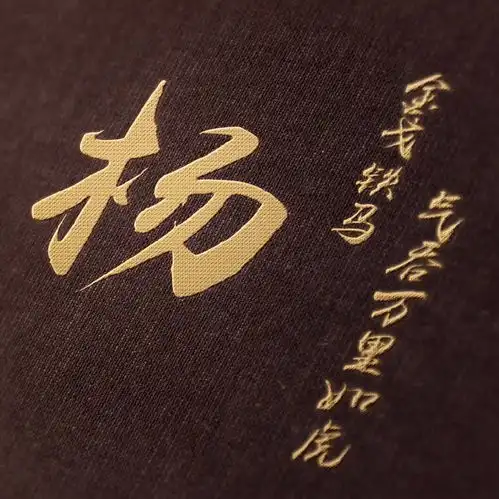 杨
金戈铁马
气吞万里如虎